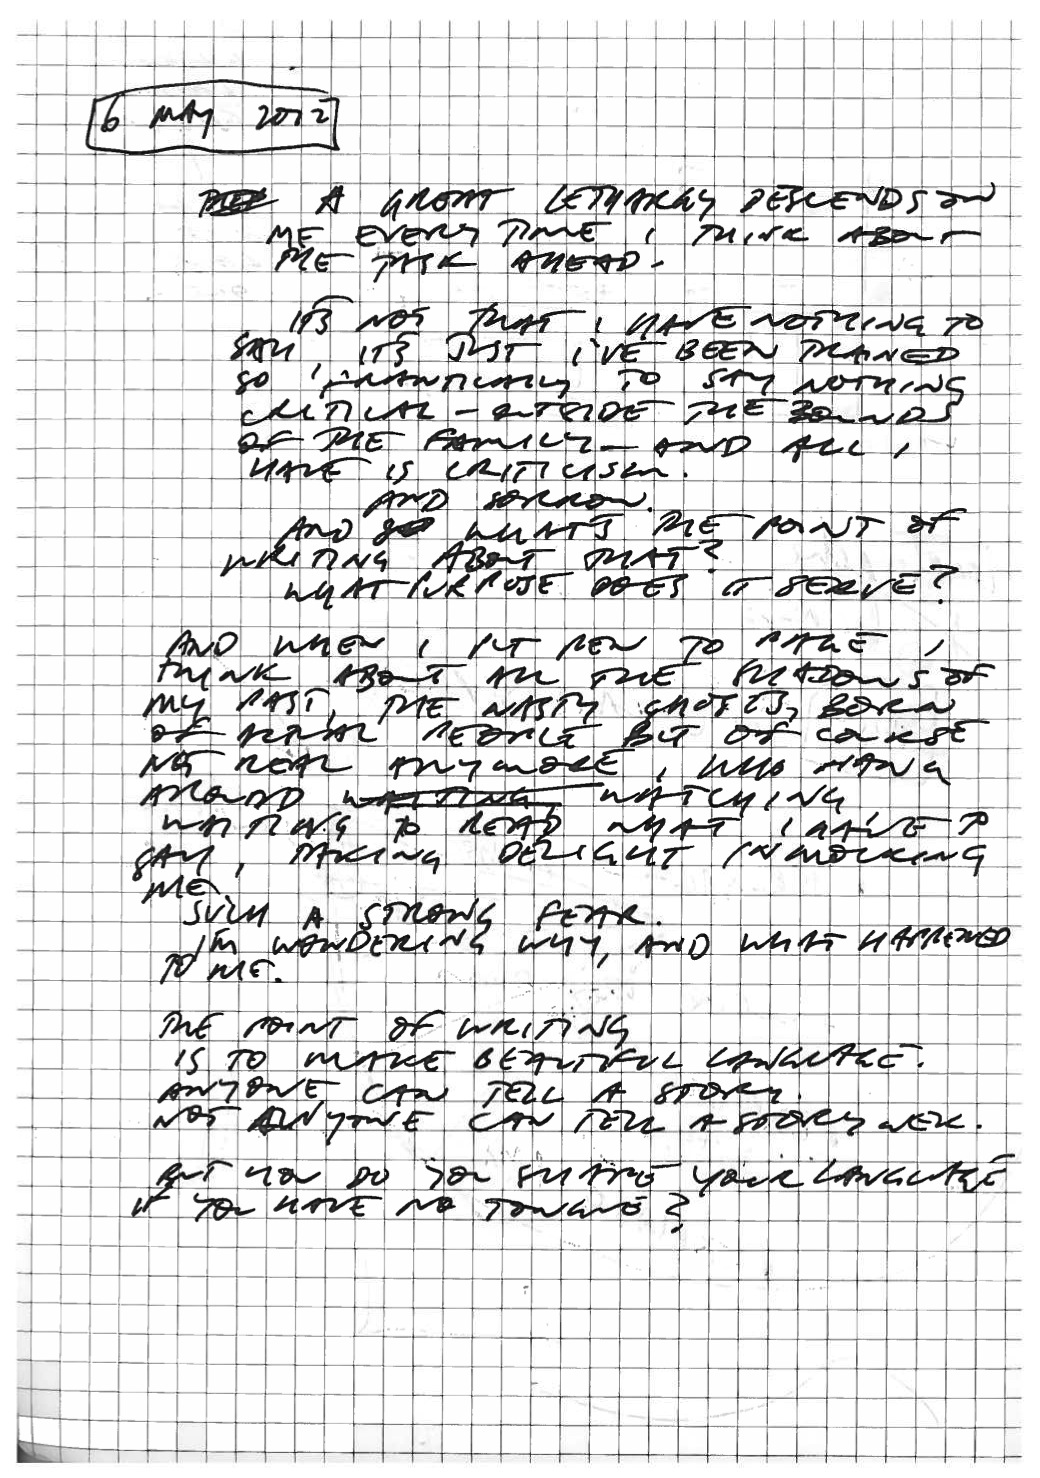 6 MAY 2012
A GREAT LETHARGY DESCENDS ON
ME EVERY TIME I THINK ABOUT
THE TASK AHEAD.
IT'S NOT THAT I HAVE NOTHING TO
SAY, IT'S JUST I'VE BEEN TRAINED
SO FRANTICALLY TO SAY NOTHING
CRITICAL – OUTSIDE THE BOUNDS
OF THE FAMILY – AND ALL I
HAVE IS CRITICISM.
AND SORROW.
AND WHAT'S THE POINT OF
WRITING ABOUT THAT?
WHAT PURPOSE DOES IT SERVE?
AND WHEN I PUT PEN TO PAGE I
THINK ABOUT ALL THE SHADOWS OF
MY PAST, THE NASTY GHOSTS, BORN
OF ACTUAL PEOPLE BUT OF COURSE
NOT REAL ANYMORE, WHO HANG
AROUND WAITING, WATCHING
WAITING TO READ WHAT I HAVE TO
SAY, TAKING DELIGHT IN MOCKING
ME.
SUCH A STRONG FEAR.
I'M WONDERING WHY, AND WHAT HAPPENED
TO ME.
THE POINT OF WRITING
IS TO MAKE BEAUTIFUL LANGUAGE.
ANYONE CAN TELL A STORY.
NOT ANYONE CAN TELL A STORY WELL.
BUT HOW DO YOU SHAPE YOUR LANGUAGE
IF YOU HAVE NO TONGUE?